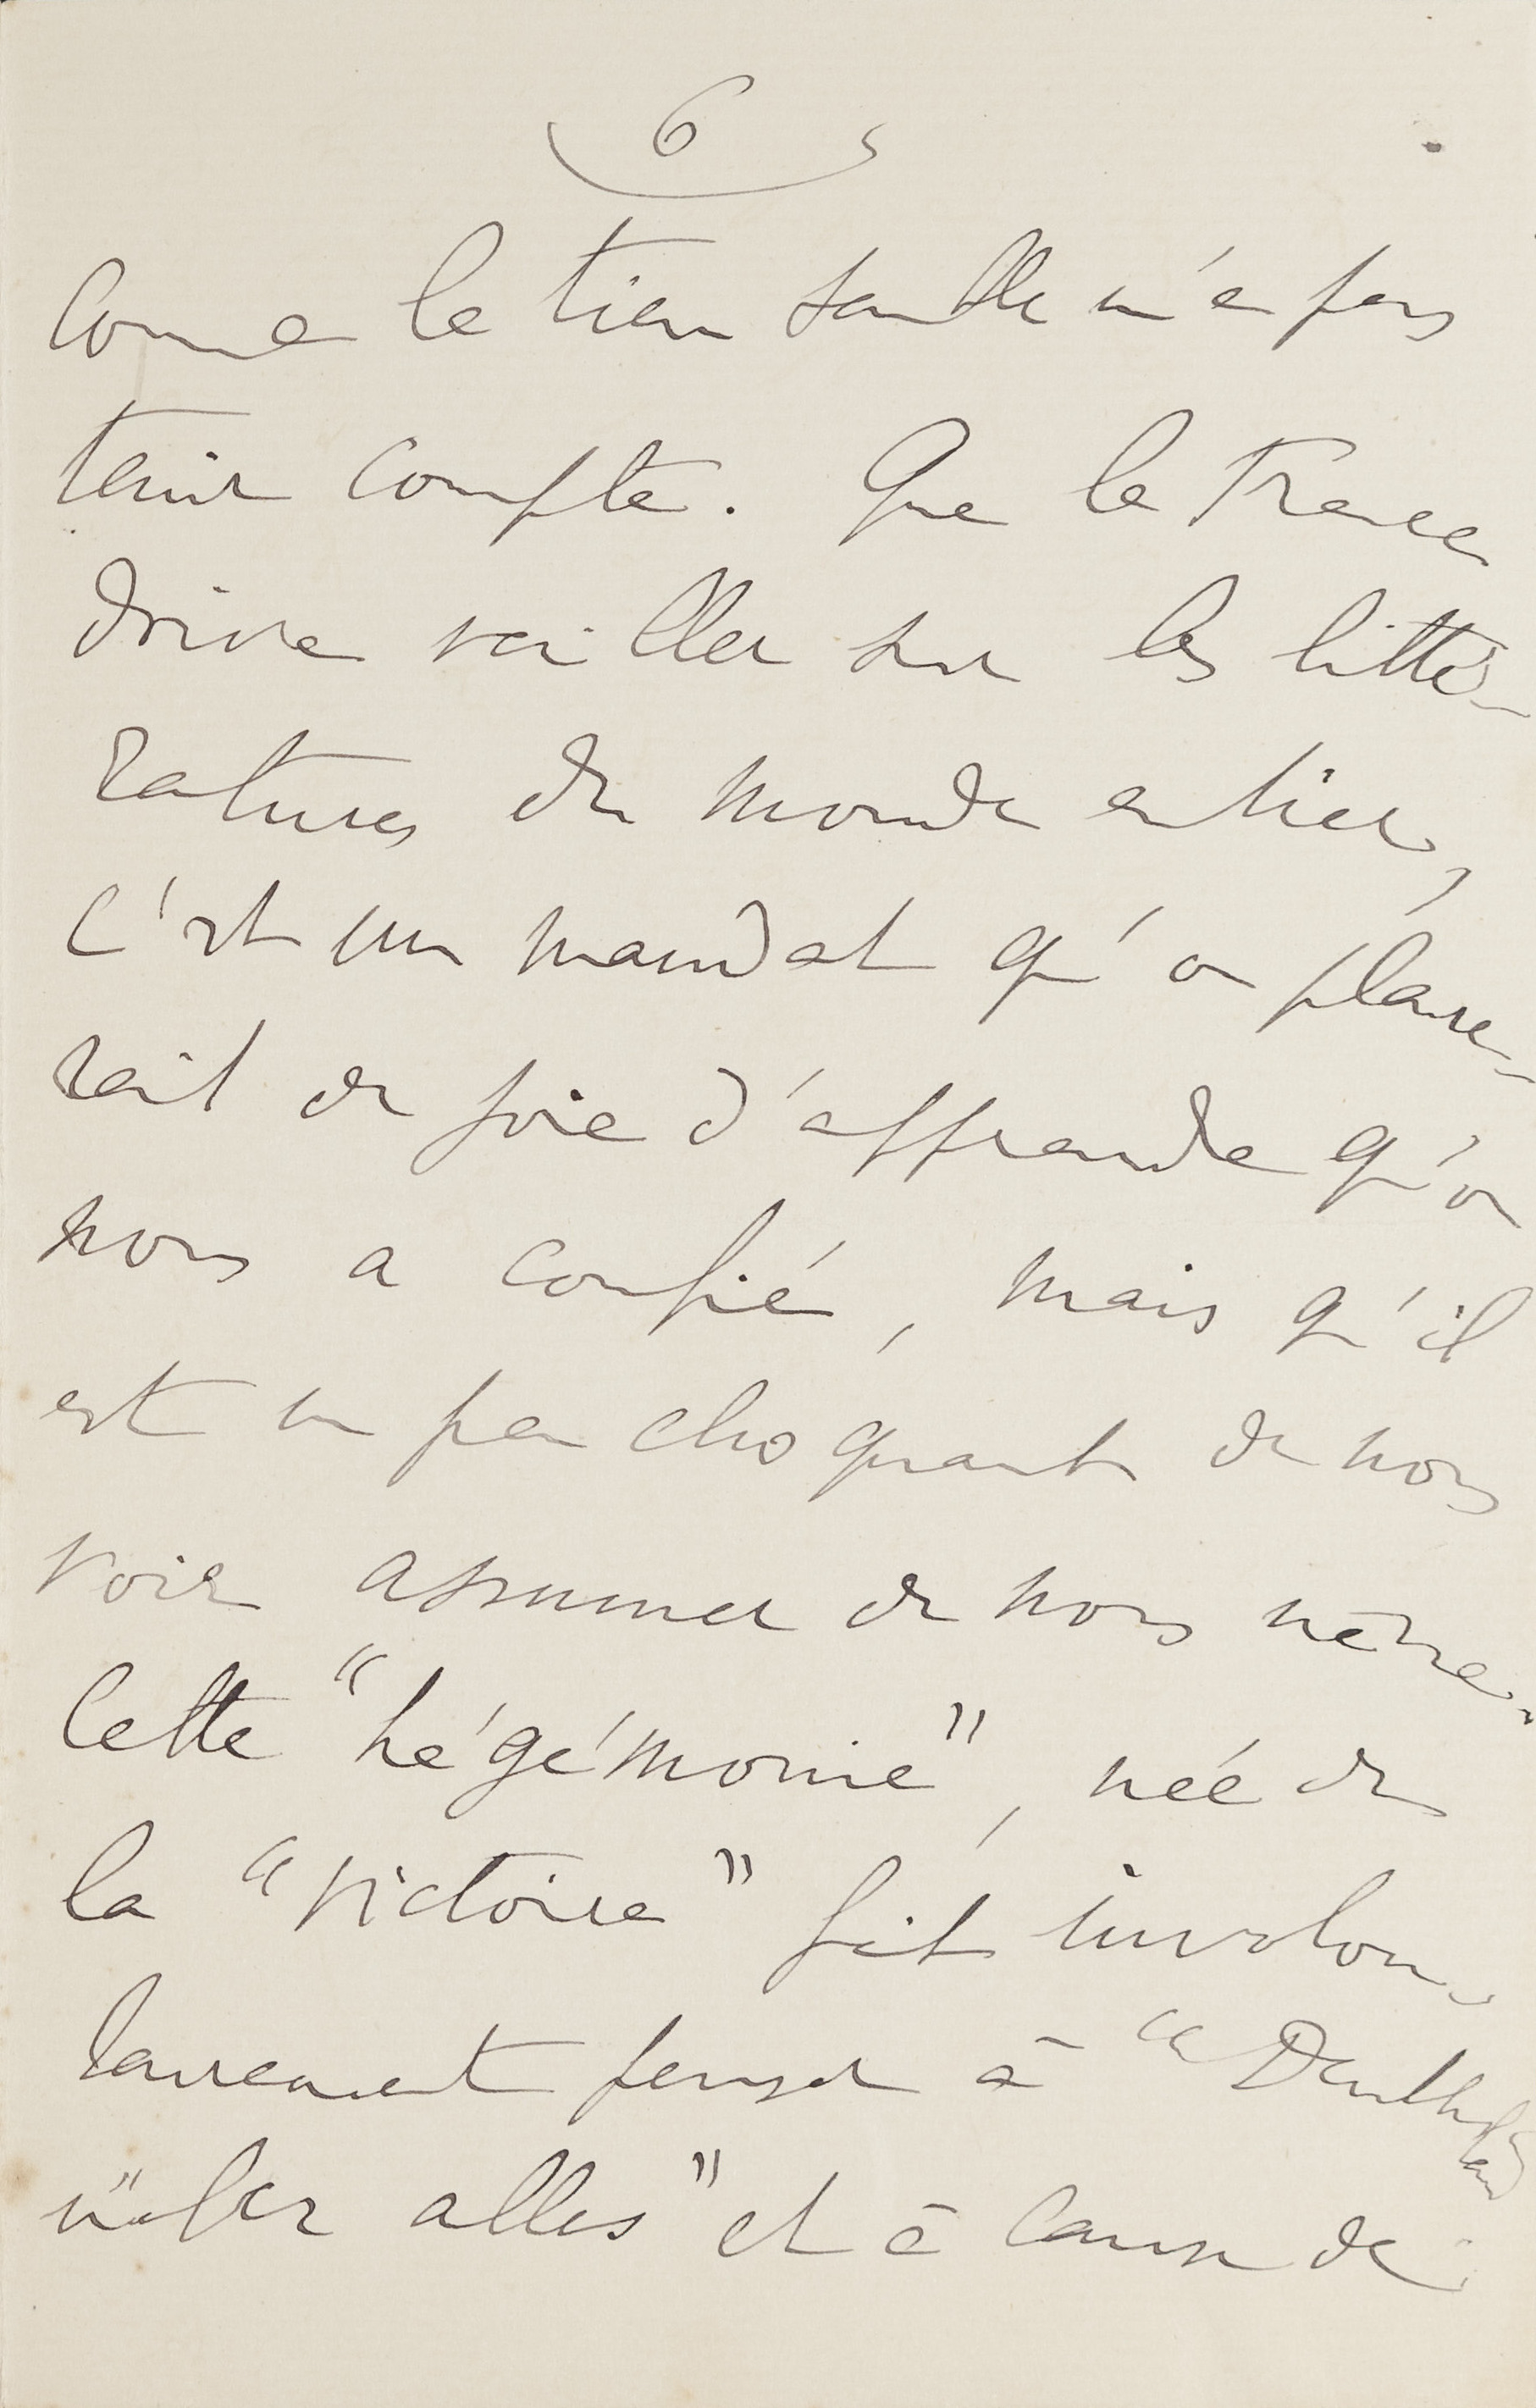 6
comme le tien semble n'en pas
tenir compte. Que la France
doive veiller sur les litté-
ratures du monde entier,
c'est un mandat qu'on pleure-
rait de joie d'apprendre qu'on
nous a confié, mais qu'il
est un peu choquant de nous
voir assumer de nous même.
Cette "hégémonie", née de
la "Victoire" fait involon-
tairement penser à "Deutschland
über alles" et à cause de